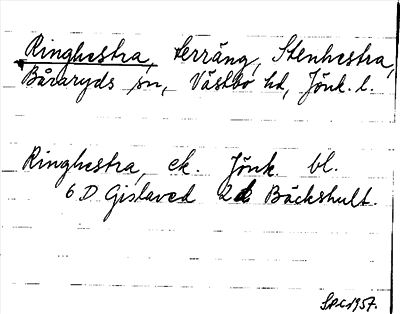 Ringhestra, terräng, Stenhestra,
Båraryds sn, Västbo hd, Jönk. l.
Ringhestra, ek. Jönk. bl.
6 D Gislaved 2d Bäckshult.